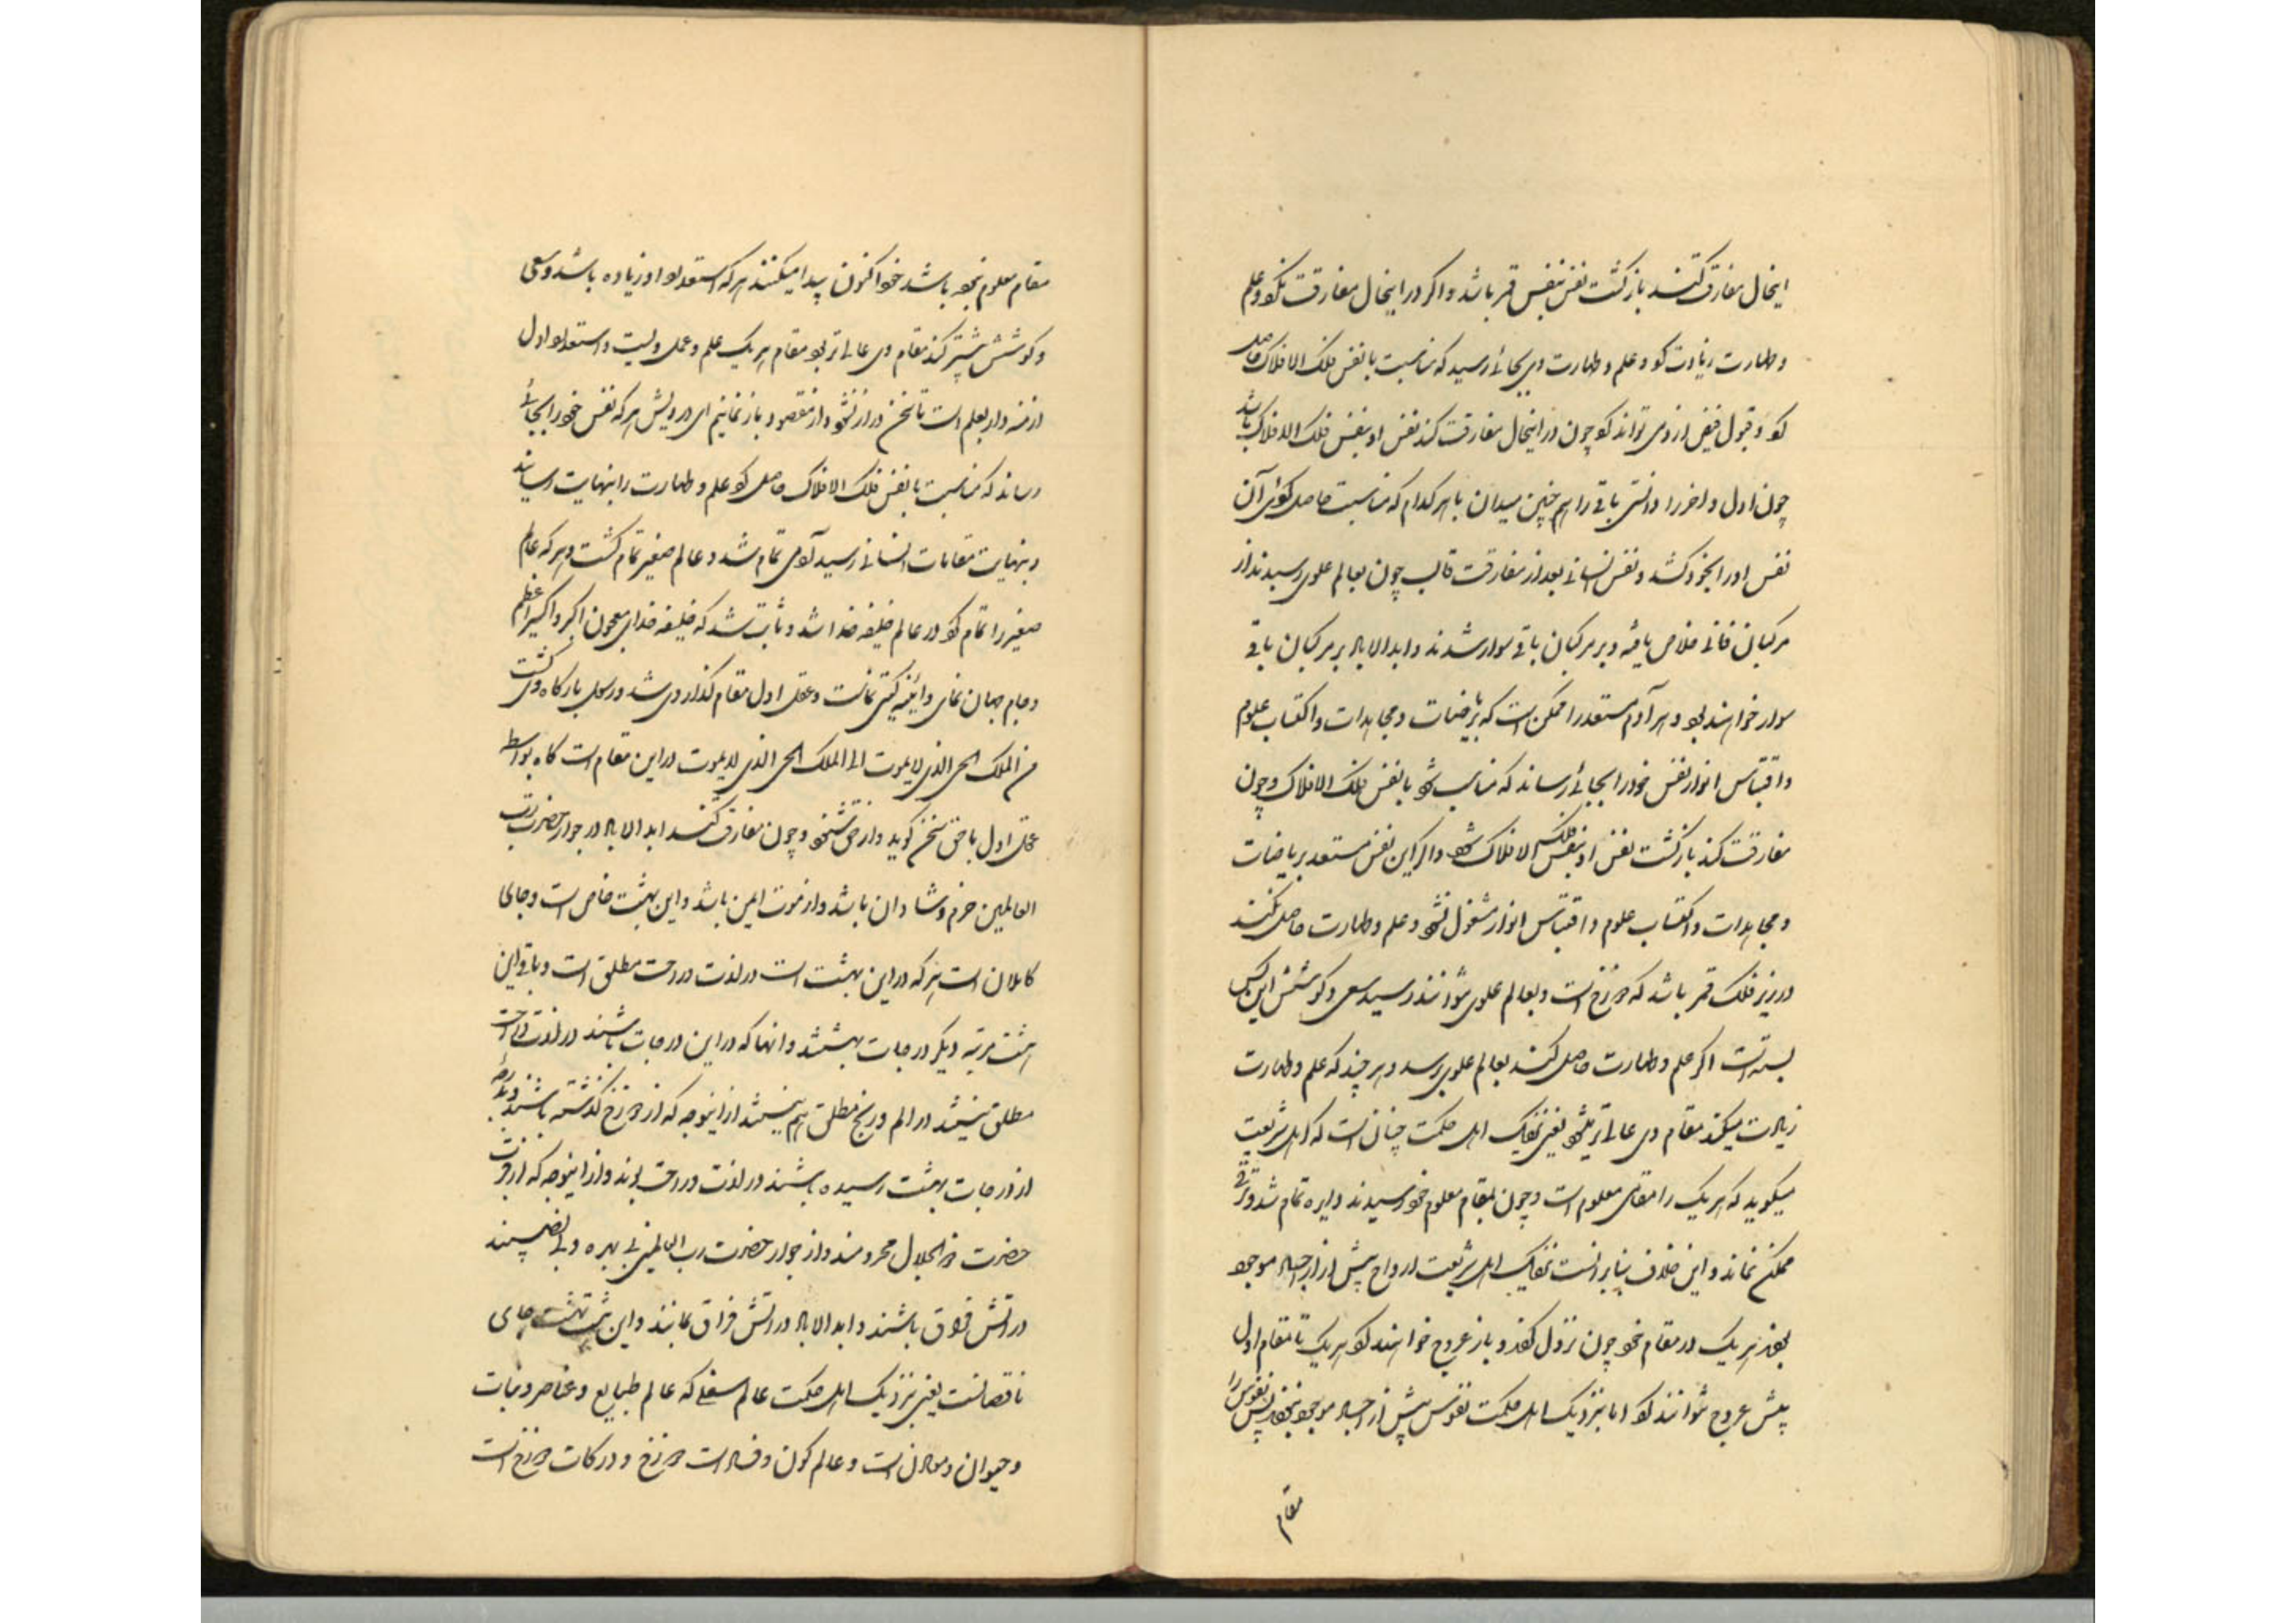 اینحال مفارقت کند بازگشت نفس بنفس قمر باشد و اگر در اینحال مفارقت نکرد و علم
و طهارت زیادت کرد و علم و طهارت وی بجائی رسید که مناسبت با نفس فلک الافلاک حاصل
کرد و قبول فیض از وی تواند کرد چون در اینحال مفارقت کند نفس او بنفس فلک الافلاک باشد
چون اول و اخر را دانستی باقی را هم چنین میدان با هر کدام که مناسبت حاصل کرد آن
نفس او را بخود کشد و نفس انسانی بعد از مفارقت قالب چون بعالم علوی رسیدند از
مرکبان فانی خلاص یافته و بر مرکبان باقی سوار شدند و ابد الاباد بر مرکبان باقی
سوار خواهند بود و هر آدم مستعد را ممکن است که بریاضات و مجاهدات و اکتساب علوم
و اقتباس انوار نفس خود را بجائی رساند که مناسب شود با نفس فلک الافلاک و چون
مفارقت کند بازگشت نفس او بنفس فلک الافلاک شود و اگر این نفس مستعد بریاضات
و مجاهدات و اکتساب علوم و اقتباس انوار مشغول نشود و علم و طهارت حاصل نکند
در زیر فلک قمر باشد که دوزخ است و بعالم علوی نتواند رسید سعی و کوشش این کس
بسته است اگر علم و طهارت حاصل کند بعالم علوی رسد و هر چند که علم و طهارت
زیادت میکند مقام وی عالی تر میشود یعنی نزدیک اهل حکمت چنان است که اهل شریعت
میگوید که هر یک را مقامی معلوم است و چون بمقام معلوم خود رسیدند دایره تمام شد و ترقی
ممکن نماند و این خلاف بنابر آنست نزدیک اهل شریعت ارواح پیش از اجساد موجود
بودند هر یک در مقام خود چون نزول کردند و باز عروج خواهند کرد هر یک تا مقام اول
بیش عروج نتوانند کرد اما بنزدیک اهل حکمت نفوس پیش از اجساد موجود نبودند پس نفوس را
مقام
مقام معلوم نبوده باشد خود اکنون پیدا میکنند هر که استعداد او زیاده باشد و سعی
و کوشش بیشتر کند مقام وی عالی تر بود مقام هر یک علم و عمل ویست و استعداد اول
ازمنه دارد بعلم است تا سخن دراز نشود و از مقصود باز نمانیم ای درویش هر که نفس خود را بجائی
رساند که مناسبت با نفس فلک الافلاک حاصل کرد علم و طهارت را بنهایت رسانید
و بنهایت مقامات انسانی رسید آدمی تمام شد و عالم صغیر تمام گشت و هر که عالم
صغیر را تمام کرد در عالم خلیفه خدا شد و ثابت شد که خلیفه خدای معجون اکبر و اکسیر اعظم
و جام جهان نمای و آئینه گیتی نماست و عقل اول مقام گذار وی شد و رسول بارگاه وی گشت
من الملک الحی الذی لا یموت الی الملک الحی الذی لا یموت در این مقام است گاه بواسطه
عقل اول با حق سخن گوید و از حق شنود و چون مفارقت کند ابد الاباد در جوار حضرت رب
العالمین خرم و شادان باشد و از موت ایمن باشد و این بهشت خاص است و جای
کاملان است هر که در این بهشت است در لذت و راحت مطلق است و باقی این
هشت مرتبه دیگر درجات بهشتند و آنها که در این درجات باشند در لذت و راحت
مطلق نیستند در الم و رنج مطلق هم نیستند از اینوجه که از دوزخ گذشته باشند و بدرجه
از درجات بهشت رسیده باشند در لذت و راحت بوند و از اینوجه که از قرب
حضرت ذو الجلال محرومند و از جوار حضرت رب العالمین بی بهره و بی نصیبند
در آتش فراق باشند و ابد الاباد در آتش فراق بمانند و این هشت بهشت جای
ناقصانست یعنی نزدیک اهل حکمت عالم سفلی که عالم طبایع و عناصر و نبات
و حیوان و معادن است و عالم کون و فساد است دوزخ و درکات دوزخ است